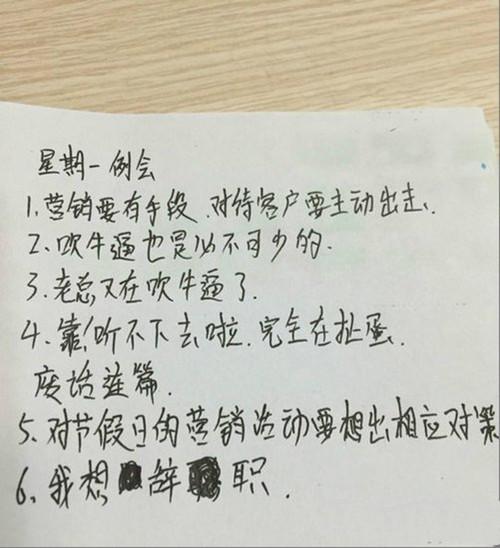 星期一例会
1.营销要有手段.对待客户要主动出击.
2.吹牛逼也是必不可少的.
3.老总又在吹牛逼了.
4.靠!听不下去啦.完全在扯蛋.
废话连篇.
5.对节假日的营销活动要想出相应对策
6.我想辞职.